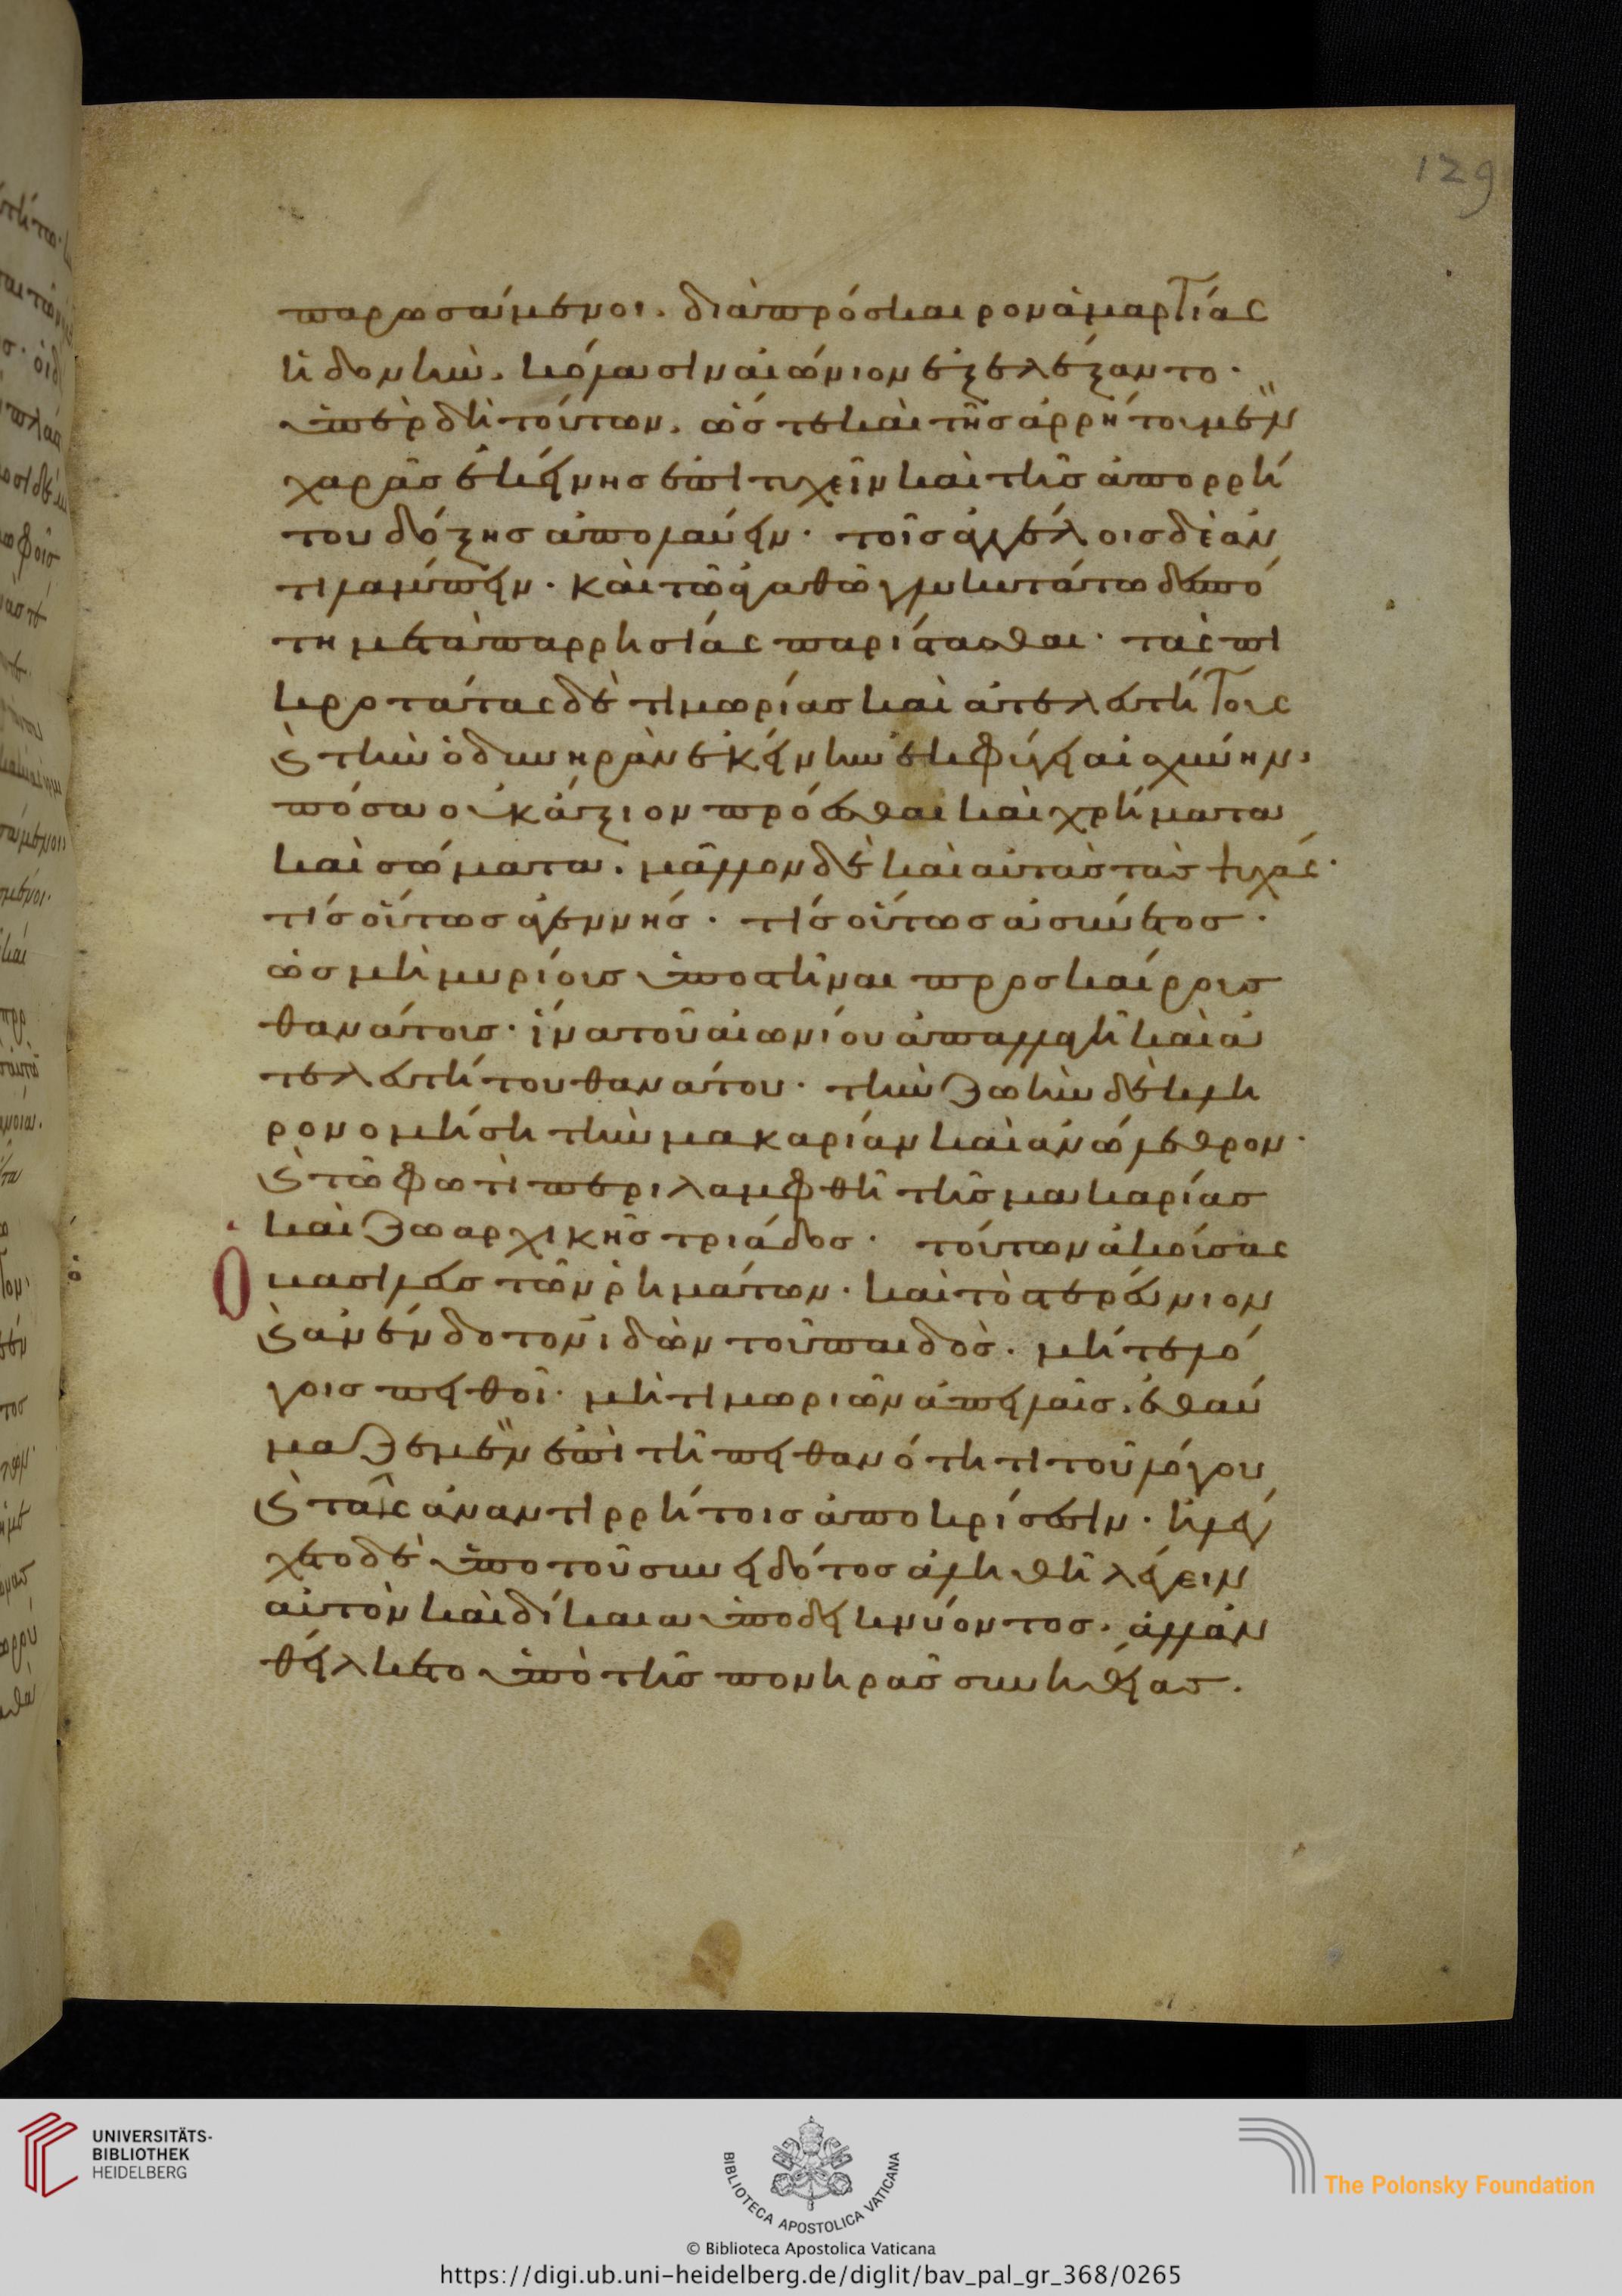 129
παρωσάμενοι. διὰ πρόσκαιρον ἁμαρτίας
ἡδονὴν. κόλασιν αἰώνιον ἐξελέξαντο·
ὑπὲρ δὴ τούτων. ὥστε καὶ τῆς ἀρρήτου μὲν
χαρᾶς ἐκείνης ἐπιτυχεῖν καὶ τῆς ἀπορρή
του δόξης ἀπολαύειν· τοῖς ἀγγέλοις δὲ ἀν
τιλαμπειν· καὶ τῶ ἀγαθῶ γλυκυτάτω δεσπό
τη μετὰ παρρησίας παρίστασθαι· τὰς πι
κροτάτας δὲ τιμωρίας καὶ ἀτελευτήτους
καὶ τὴν ὀδυνηρὰν ἐκείνην ἐκφύγει αἰσχύνην·
πόσα οὐκ ἄξιον πρόεσθαι καὶ χρήματα
καὶ σώματα. μᾶλλον δὲ καὶ αὐτὰς τὰς ψυχάς·
τίς οὕτως ἀγεννής· τίς οὕτως ἀσύνετος·
ὡς μὴ μυρίοις ὑποστῆναι προσκαίροις
θανάτοις· ἵνα τοῦ αἰωνίου ἀπαλλαγῆ καὶ ἀ
τελευτήτου θανάτου· τὴν ζωὴν δὲ κλη
ρονομήση τὴν μακαρίαν καὶ ἀνώλεθρον·
καὶ τῶ φωτὶ περιλαμφθῆ τῆς μακαρίας
καὶ ζωαρχικῆς τριάδος· τούτων ἀκούσας
ὁ βασιλεὺς τῶν ῥημάτων· καὶ τὸ στερέμνιον
καὶ ἀνένδοτον ἰδὼν τοῦ παιδὸς. μήτε λό
γοις πειθοῖ· μὴ τιμωριῶν ἀπειλαῖς. ἐθαύ
μαζε μὲν ἐπὶ τῆ πειθανότητι τοῦ λόγου
καὶ ταῖς ἀναντιρρήτοις ἀποκρίσεσιν· ἠλέγ
χετο δὲ ὑπο τοῦ συνειδότος ἀληθῆ λέγειν
αὐτὸν καὶ δίκαια ὑποδεικνύοντος. ἀλλ' ἀν
θείλκετο ὑπὸ τῆς πονηρᾶς συνηθείας.
UNIVERSITÄTS-
BIBLIOTHEK
HEIDELBERG
BIBLIOTECA APOSTOLICA VATICANA
The Polonsky Foundation
© Biblioteca Apostolica Vaticana
https://digi.ub.uni-heidelberg.de/diglit/bav_pal_gr_368/0265